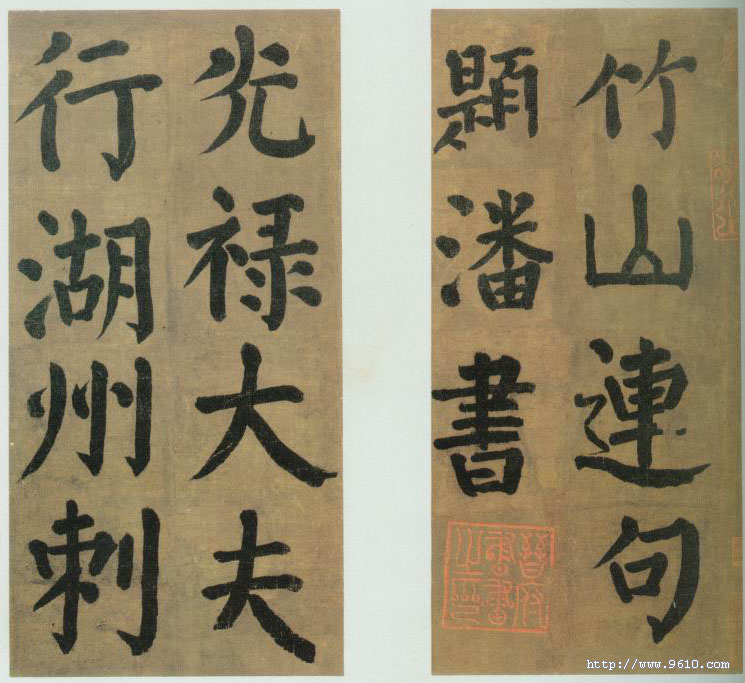 竹山連句
題潘書
晉府
書畫
之印
光禄大夫
行湖州刺
http://www.9610.com